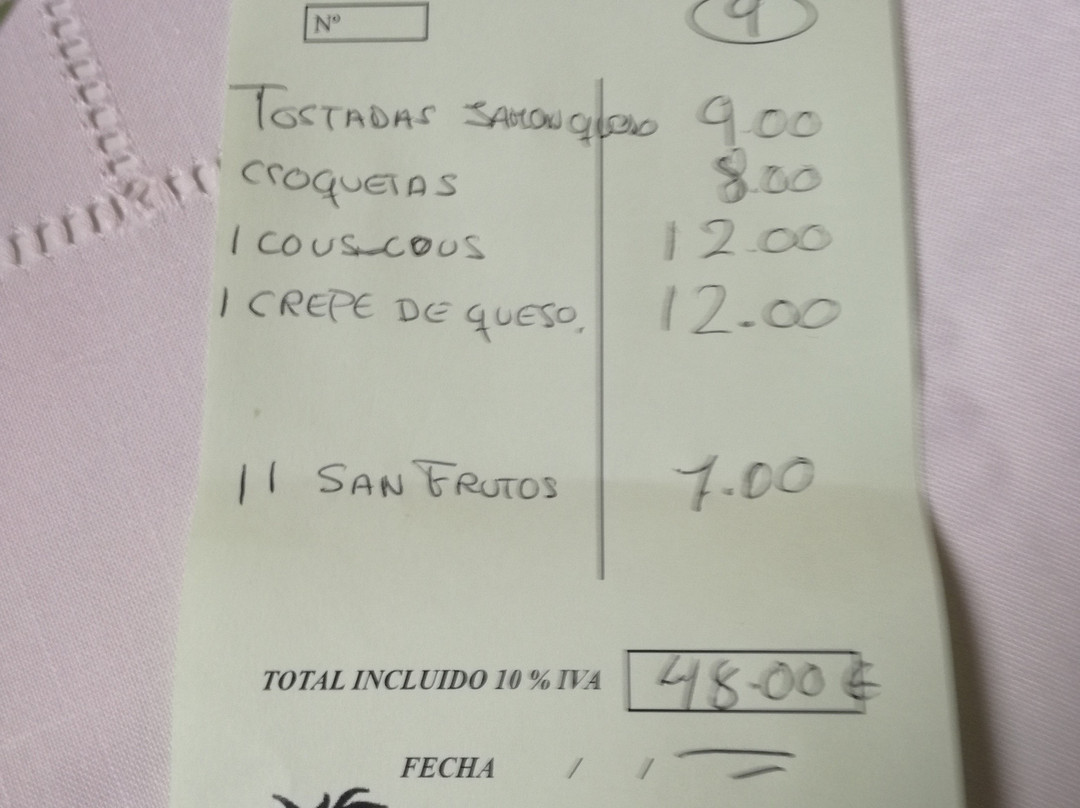 Nº
9
TOSTADAS JAMON QUESO 9.00
CROQUETAS 8.00
1 COUS-COUS 12.00
1 CREPE DE QUESO. 12.00
11 SAN FRUTOS 7.00
TOTAL INCLUIDO 10 % IVA 48.00 €
FECHA / /